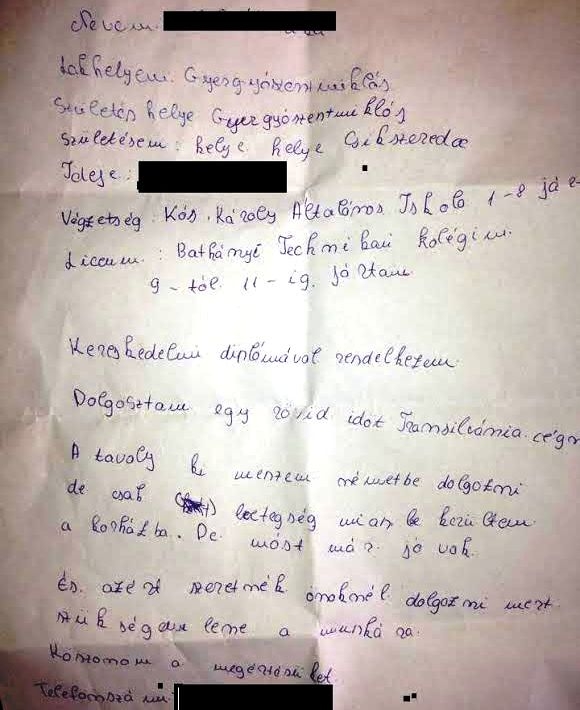 Nevem:
Lakhelyem: Gyergyószentmiklós
Születés helye Gyergyószentmiklós
Születésem: helye helye Csikszereda
Ideje:
Végzetség Kós Károly Általános Iskola 1-8 já
Liceum: Bathányi Technikai kolégium.
9-től 11-ig jártam
Kereskedelmi diplómával rendelkezem.
Dolgosztam egy rövid időt Transilvánia cégn
A tavoly ki mentem németbe dolgozni
de csak betegség miatt be kerültem
a korházba. De most már jó vok.
És azért szeretnék önöknél dolgozni mert
szükségem lene a munkára.
Köszönöm a megértésüket
Telefomszámu: